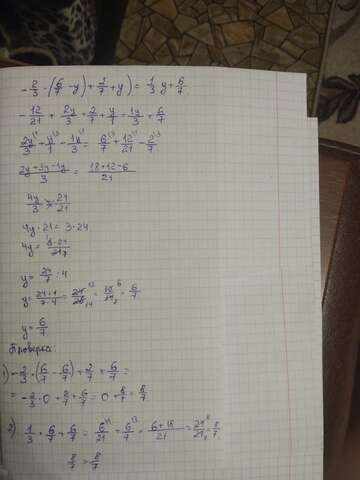 -2/3 · (6/7 - y) + 2/7 + y) = 1/3 y + 6/7
-12/21 + 2y/3 + 2/7 + y/1 - 1y/3 = 6/7
2y/3 + y/1 - 1y/3 = 6/7 + 12/21 - 2/7
2y+3y-1y/3 = 18+12-6/21
4y/3 = 24/21
4y · 21 = 3 · 24
4y = 3·24/21
y = 24/7 : 4
y = 24·1/7·4 = 24/28 = 12/14 = 6/7
y = 6/7
Проверка:
1) -2/3 · (6/7 - 6/7) + 2/7 + 6/7 =
= -2/3 · 0 + 2/7 + 6/7 = 0 + 8/7 = 8/7
2) 1/3 · 6/7 + 6/7 = 6/21 + 6/7 = 6+18/21 = 24/21 = 8/7
8/7 = 8/7